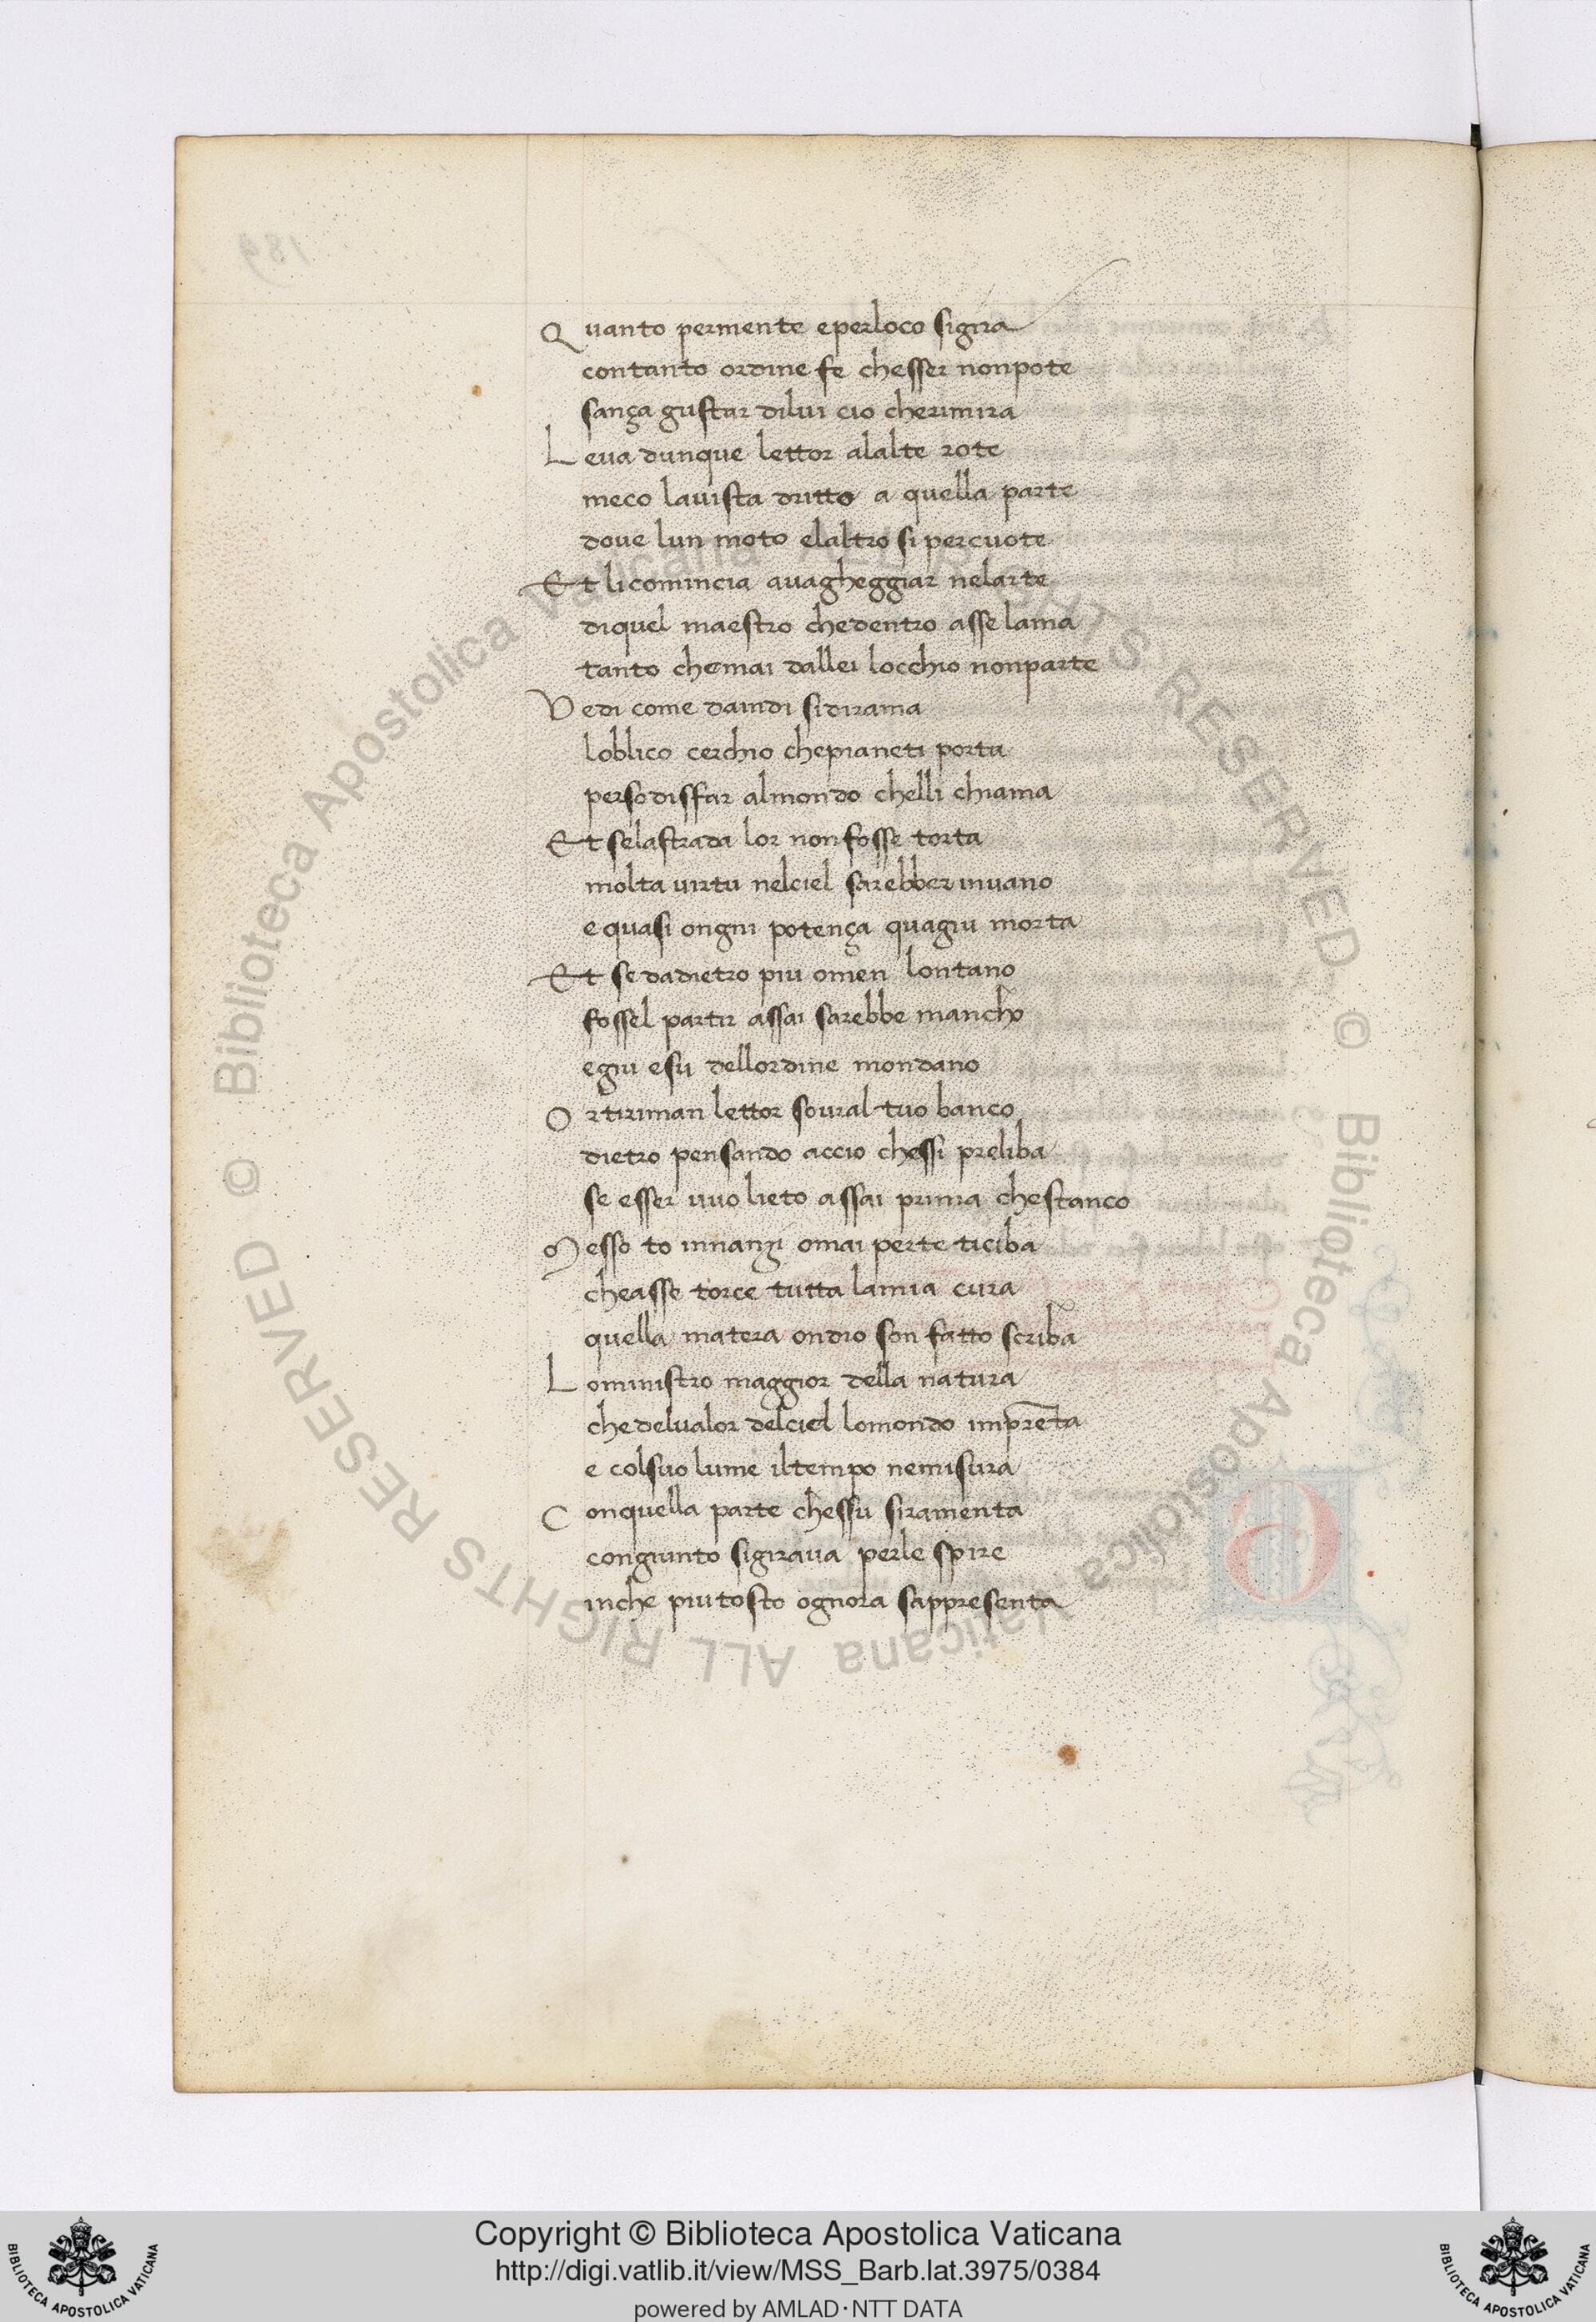 Quanto permente eperloco sigira
contanto ordine fe chesser nonpote
sança gustar dilui cio cherimira
Leva dunque lettor alalte rote
meco lavista dritto a quella parte
dove lun moto elaltro si percuote
Et li comincia avagheggiar nelarte
diquel maestro chedentro asse lama
tanto chemai dallei locchio nonparte
Vedi come daindi sidirama
loblico cerchio chepianeti porta
persodisfar almondo chelli chiama
Et selastrada lor nonfosse torta
molta virtu nelciel sarebber invano
e quasi ongni potença quagiu morta
Et se dadietro piu omen lontano
fossel partir assai sarebbe mancho
egiu esu dellordine mondano
Ortiriman lettor sovral tuo banco
dietro pensando accio chessi preliba
se esser vuo lieto assai prima chestanco
Messo to innançi omai perte ticiba
cheasse torce tutta lamia cura
quella matera ondio son fatto scriba
Loministro maggior della natura
chedelvalor delciel lomondo imprēta
e colsuo lume iltempo nemisura
Conquella parte chessu siramenta
congiunto sigirava perle spire
inche piutosto ognora sappresenta
189
© Biblioteca Apostolica Vaticana ALL RIGHTS RESERVED
© Biblioteca Apostolica Vaticana ALL RIGHTS RESERVED
BIBLIOTECA APOSTOLICA VATICANA
Copyright © Biblioteca Apostolica Vaticana
http://digi.vatlib.it/view/MSS_Barb.lat.3975/0384
powered by AMLAD·NTT DATA
BIBLIOTECA APOSTOLICA VATICANA